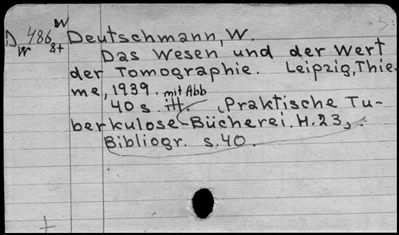 W
D 486 Deutschmann, W.
W 8+
Das Wesen und der Wert
der Tomographie. Leipzig, Thie-
me, 1939. mit Abb
40 s. (Praktische Tu-
berkulose-Bücherei. H. 23).
Bibliogr. s. 40.